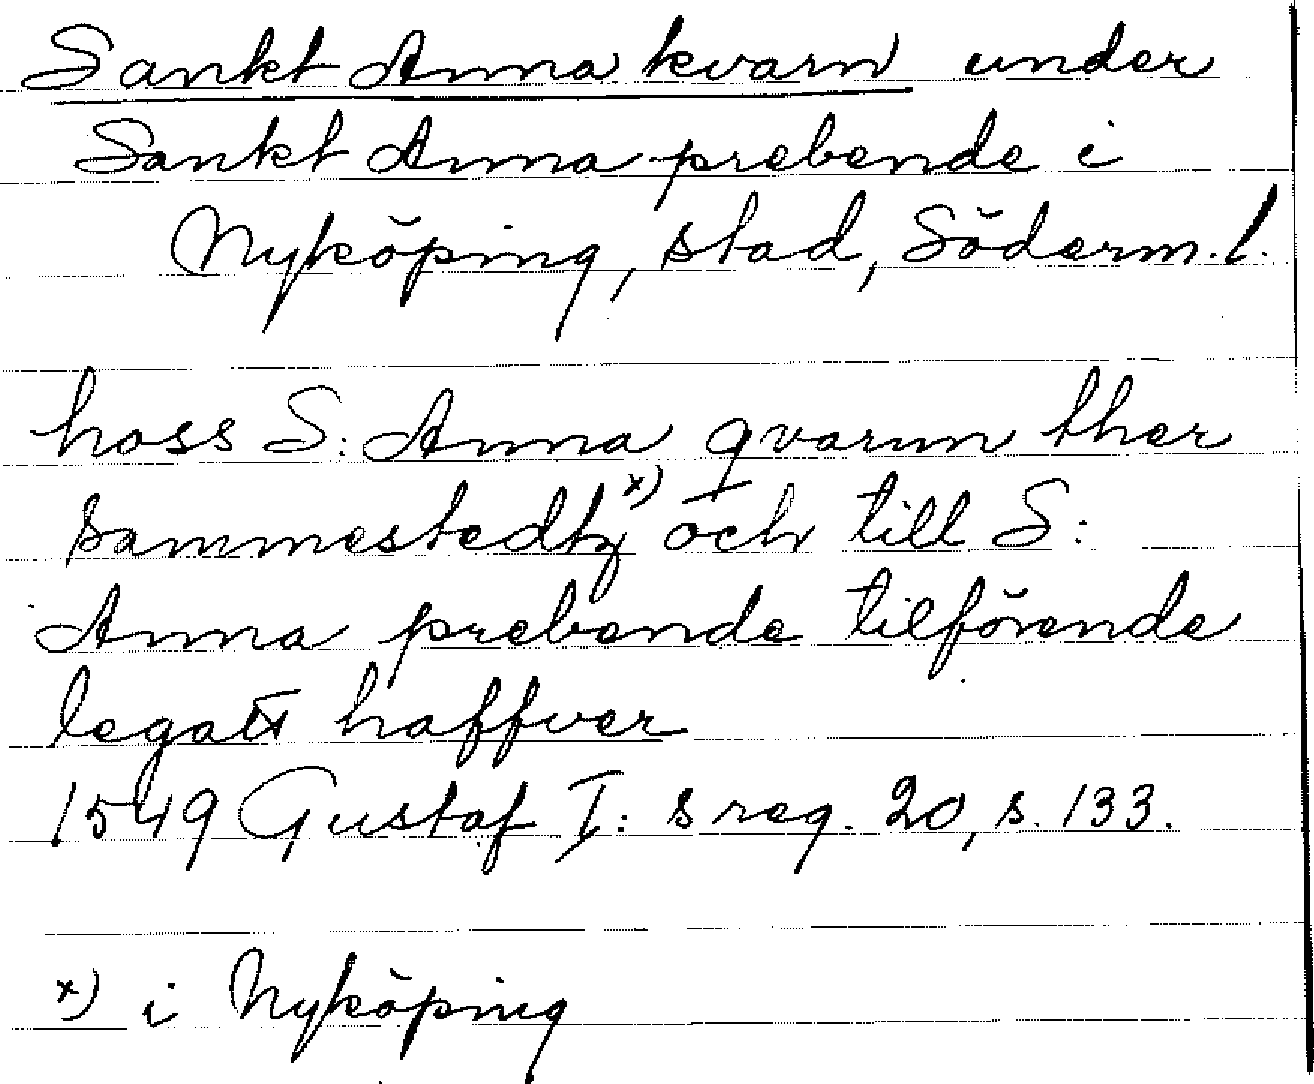 Sankt Anna kvarn under
Sankt Anna prebende i
Nyköping, stad, Söderm. l.
hoss S: Anna qvarnn ther
sammestedtz x) och till S:
Anna prebende tilförende
legatt haffver
1549 Gustaf I: s reg. 20, s. 133.
x) i Nyköping